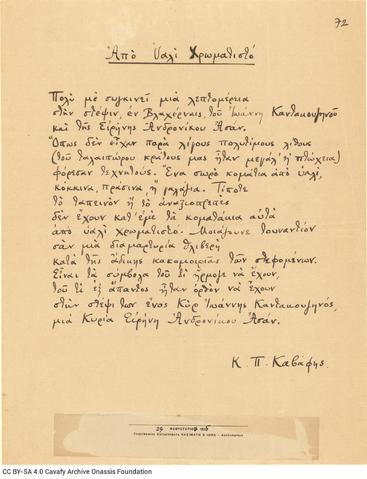 72
Ἀπὸ Ὑαλὶ Χρωματιστό
Πολὺ μὲ συγκινεῖ μιὰ λεπτομέρεια
στὴν στέψιν, ἐν Βλαχέρναις, τοῦ Ἰωάννη Καντακουζηνοῦ
καὶ τῆς Εἰρήνης Ἀνδρονίκου Ἀσάν.
Ὅπως δὲν εἶχαν παρὰ λίγους πολυτίμους λίθους
(τοῦ ταλαιπώρου κράτους μας ἦταν μεγάλ' ἡ πτώχεια)
φόρεσαν τεχνητούς. Ἕνα σωρὸ κομάτια ἀπὸ ὑαλί,
κόκκινα, πράσινα, ἢ γαλάζια. Τίποτε
τὸ ταπεινὸν ἢ τὸ ἀναξιοπρεπὲς
δὲν ἔχουν κατ' ἐμὲ τὰ κοματάκια αὐτὰ
ἀπὸ ὑαλὶ χρωματιστό. Μοιάζουνε τουναντίον
σὰν μιὰ διαμαρτυρία θλιβερὴ
κατὰ τῆς ἄδικης κακομοιριᾶς τῶν στεφομένων.
Εἶναι τὰ σύμβολα τοῦ τί ἥρμοζε νὰ ἔχουν,
τοῦ τί ἐξ ἅπαντος ἦταν ὀρθὸν νὰ ἔχουν
στὴν στέψι των ἕνας Κὺρ Ἰωάννης Καντακουζηνός,
μιὰ Κυρία Εἰρήνη Ἀνδρονίκου Ἀσάν.
Κ. Π. Καβάφης.
CC BY-SA 4.0 Cavafy Archive Onassis Foundation